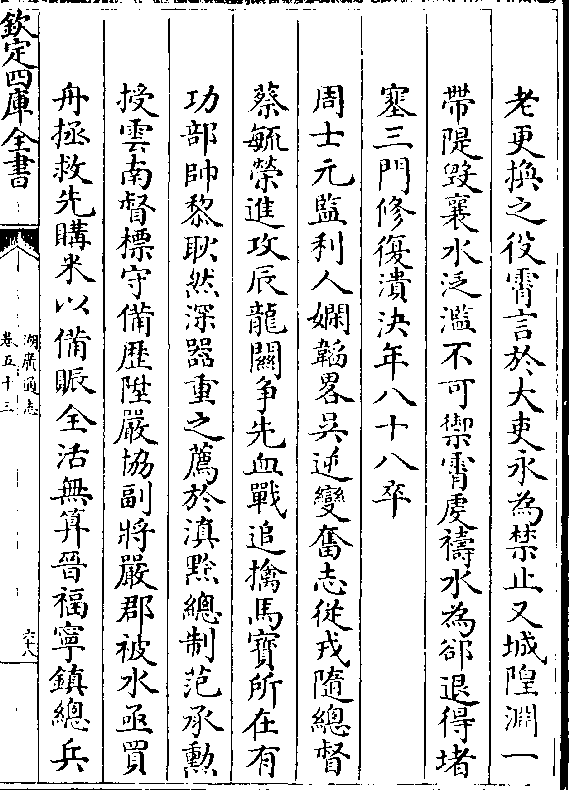 老更換之役霄言於大吏永為禁止又城隍淵一
帶隄毁襄水泛濫不可禦霄虔禱水為郤退得堵
塞三門修復潰決年八十八卒
周士元監利人嫻韜畧吳逆變奮志從戎隨總督
蔡毓榮進攻辰龍關爭先血戰追擒馬寶所在有
功部帥黎耿然深器重之薦於滇黔總制范承勲
授雲南督標守備歷陞嚴協副將嚴郡被水亟買
舟拯救先購米以備賑全活無算晉福寧鎮總兵
欽定四庫全書
湖廣通志
卷五十三
六十八